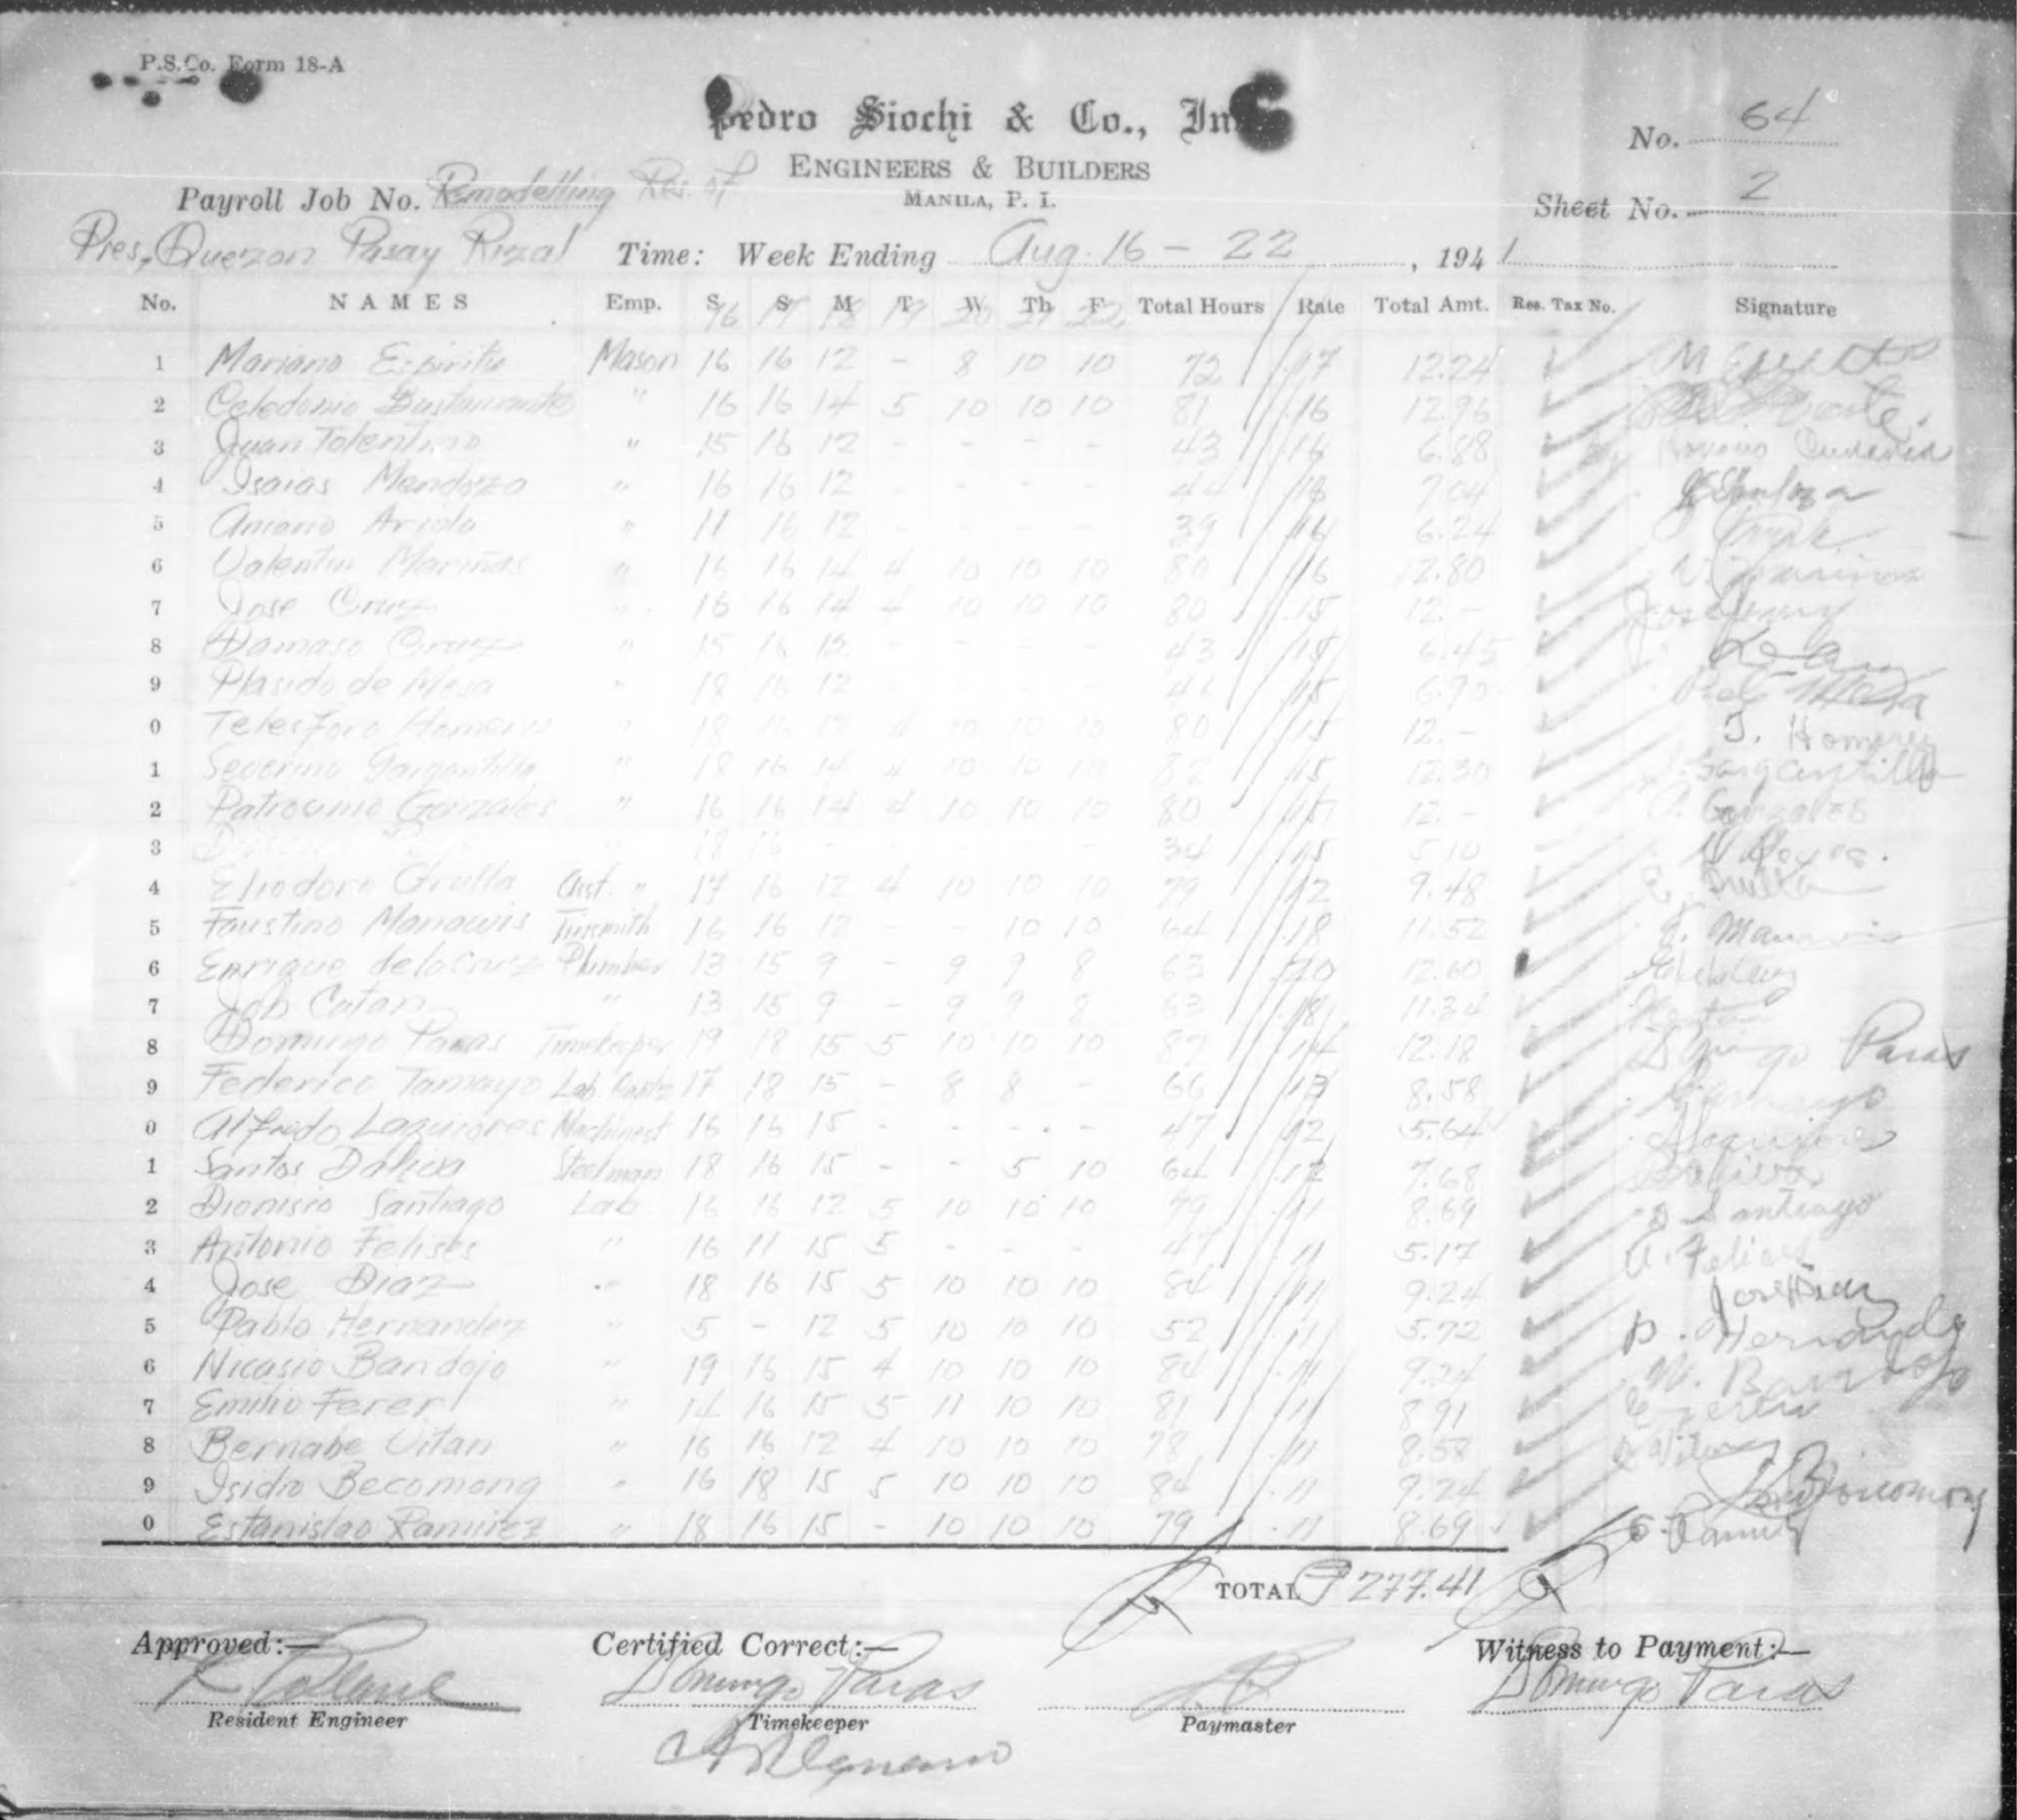 P.S.Co. Form 18-A
Pedro Siochi & Co., Inc.
No. 64
ENGINEERS & BUILDERS
MANILA, P. I.
Payroll Job No. Remodelling Res. of
Sheet No. 2
Pres, Quezon Pasay Rizal Time: Week Ending Aug. 16 - 22, 1941
No. NAMES Emp. S S M T W Th F Total Hours Rate Total Amt. Res. Tax No. Signature
16 17 18 19 20 21 22
1 Mariano Espiritu Mason 16 16 12 - 8 10 10 72 .17 12.24
2 Celedonio Bustamante " 16 16 14 5 10 10 10 81 .16 12.96
3 Juan Tolentino " 15 16 12 - - - - 43 .16 6.88
4 Isaias Mendoza " 16 16 12 - - - - 44 .16 7.04
5 Ariola " 11 16 12 - - - - 39 .16 6.24
6 Valentin Mariñas " 16 16 14 4 10 10 10 80 .16 12.80
7 Jose Cruz " 16 16 14 4 10 10 10 80 .15 12.-
8 Damaso Cruz " 15 16 12 - - - - 43 .15 6.45
9 Plasido de Mesa " 18 16 12 - - - - 46 .15 6.90
0 Telesforo " 18 16 12 4 10 10 10 80 .15 12.- T.
1 Severino Gargantilla " 18 16 14 4 10 10 10 82 .15 12.30 Gargantilla
2 Patrocinio Gonzales " 16 16 14 4 10 10 10 80 .15 12.- P. Gonzales
3 " 18 16 - - - - - 34 .15 5.10 Reyes.
4 Eliodoro Grulla Asst. " 17 16 12 4 10 10 10 79 .12 9.48 E. Grulla
5 Faustino Manawis Tinsmith 16 16 12 - - 10 10 64 .18 11.52
6 Enrique dela Cruz Plumber 13 15 9 - 9 9 8 63 .20 12.60
7 Job Catan " 13 15 9 - 9 9 8 63 .18 11.34
8 Domingo Paras Timekeeper 19 18 15 5 10 10 10 87 .14 12.18 Domingo Paras
9 Federico Tamayo Lab. 17 18 15 - 8 8 - 66 .13 8.58
0 Alfredo Laquiores Machinest 16 16 15 - - - - 47 .12 5.64
1 Santos Daliva Steelman 18 16 15 - - 5 10 64 .12 7.68
2 Dionisio Santiago Lab. 16 16 12 5 10 10 10 79 .11 8.69 D. Santiago
3 Antonio Felises " 16 11 15 5 - - - 47 .11 5.17 A.
4 Jose Diaz " 18 16 15 5 10 10 10 84 .11 9.24 Jose Diaz
5 Pablo Hernandez " 5 - 12 5 10 10 10 52 .11 5.72 P. Hernandez
6 Nicasio Bandojo " 19 16 15 4 10 10 10 84 .11 9.24 N. Bandojo
7 Emilio Ferer " 14 16 15 5 11 10 10 81 .11 8.91 E. Ferer
8 Bernabe Vitan " 16 16 12 4 10 10 10 78 .11 8.58 B. Vitan
9 Isidro Becomong " 16 18 15 5 10 10 10 84 .11 9.24
0 Estanislao Ramirez " 18 16 15 - 10 10 10 79 .11 8.69
TOTAL ₱ 277.41
Approved:— Certified Correct:— Witness to Payment:—
Domingo Paras Domingo Paras
Resident Engineer Timekeeper Paymaster